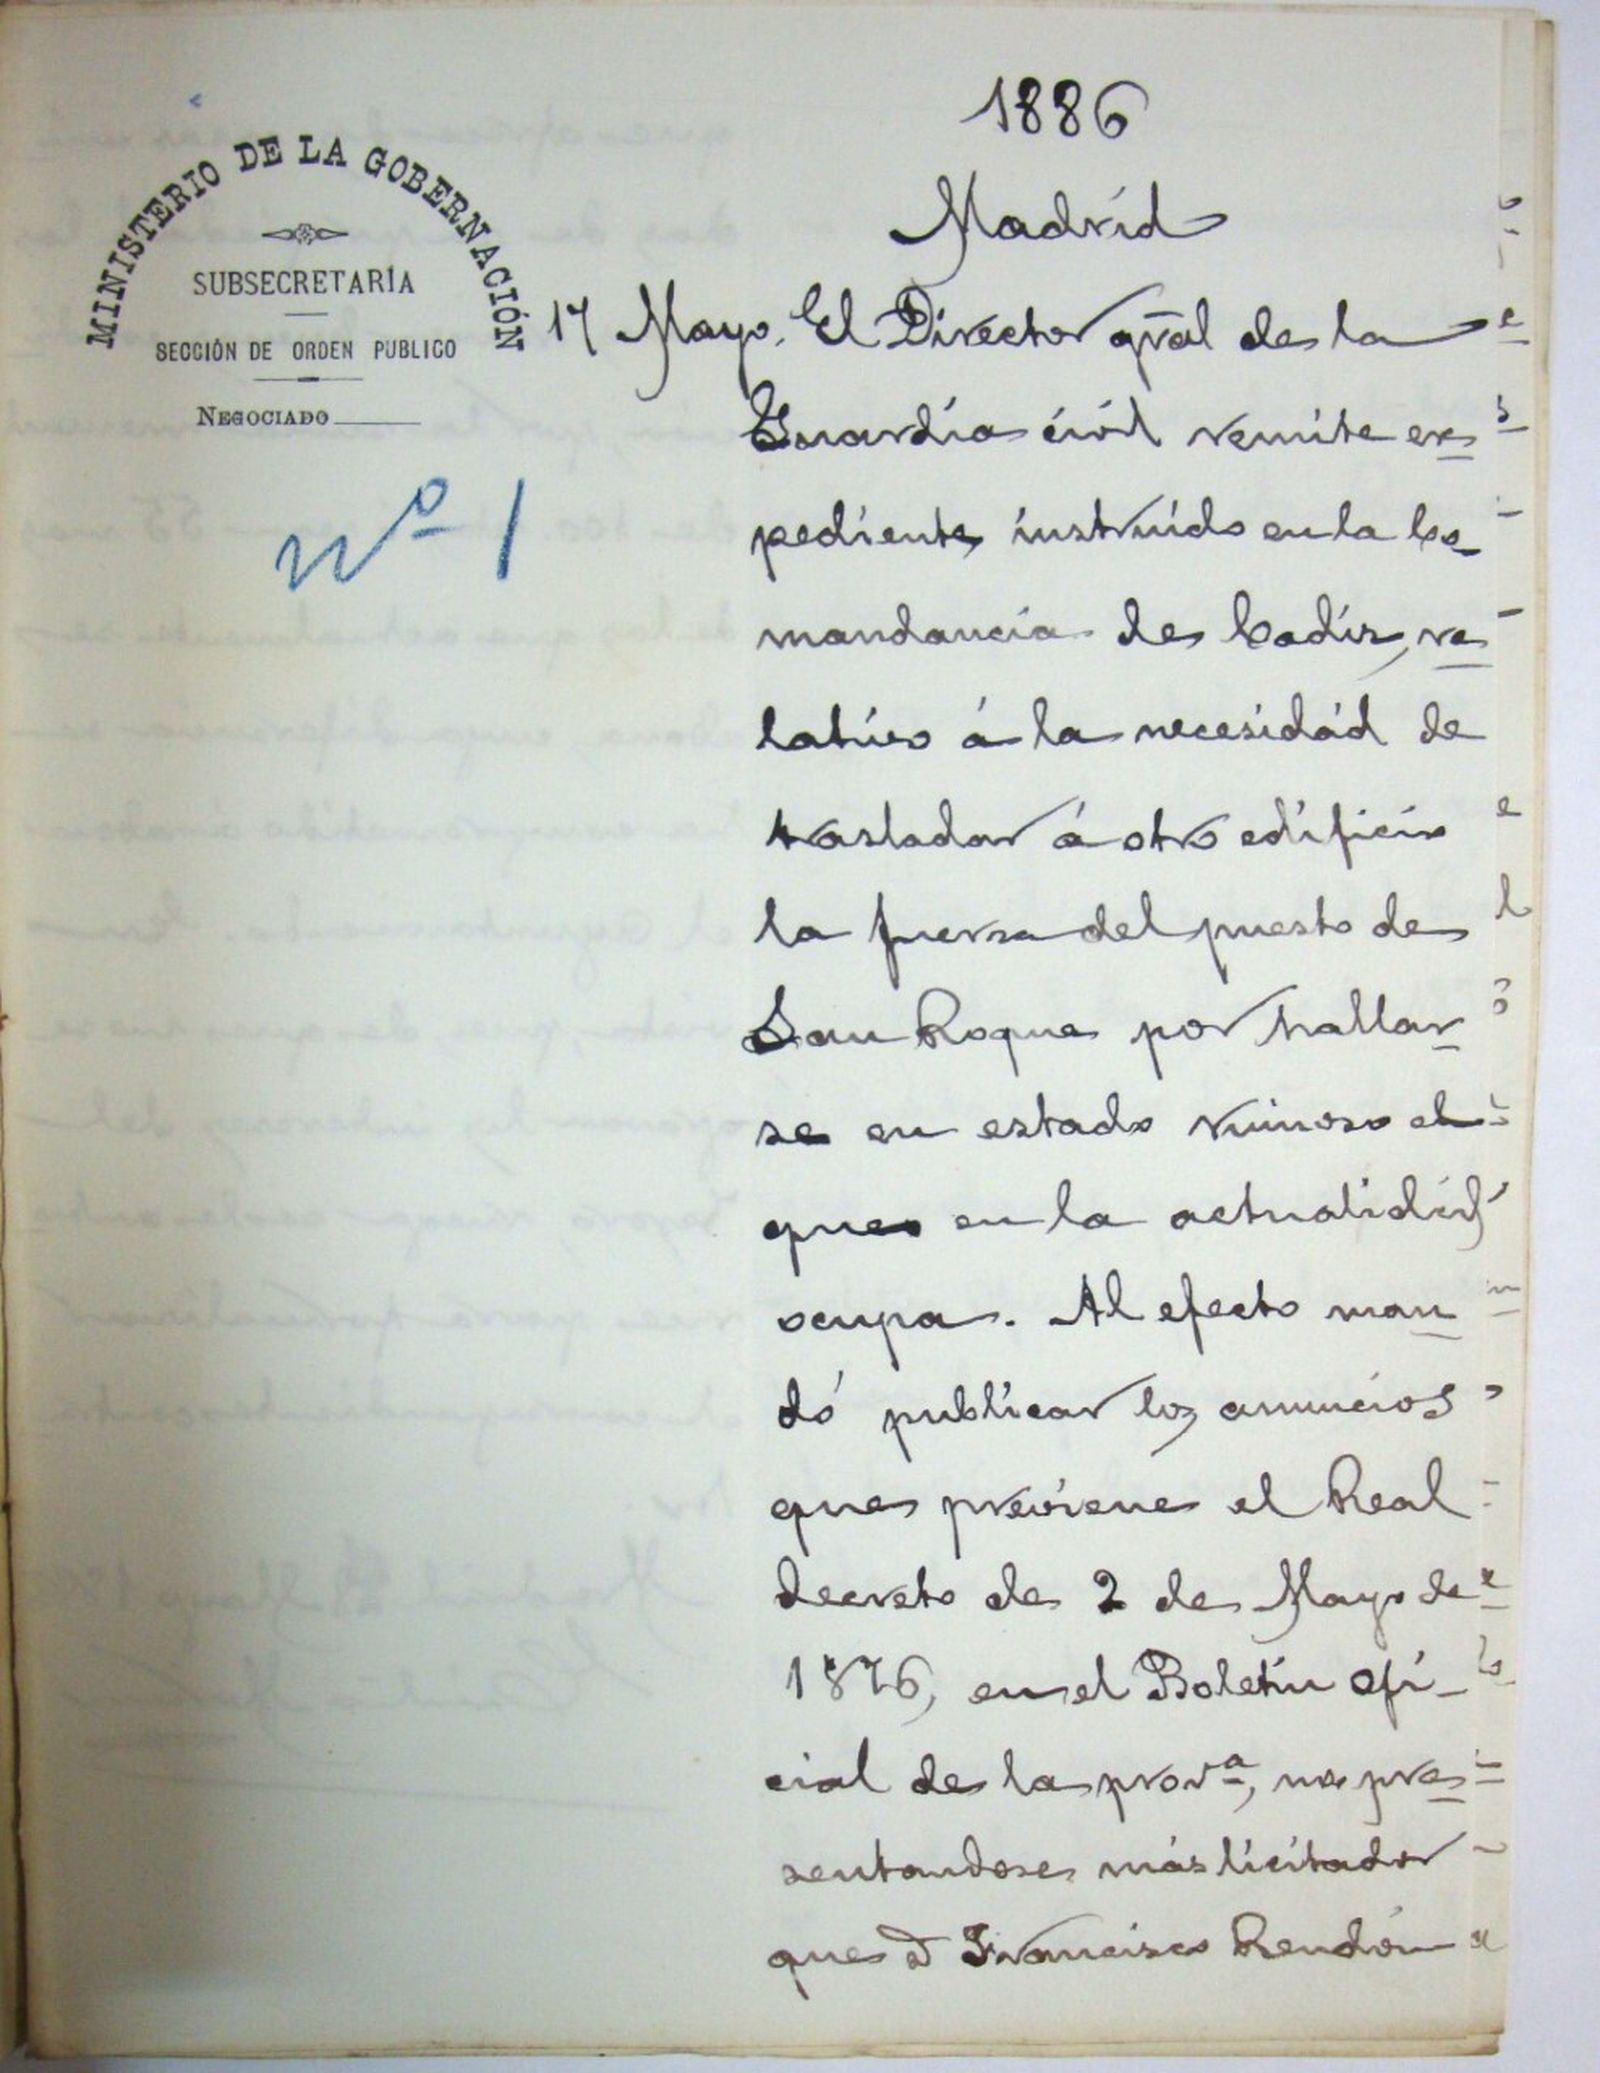 1886
Madrid
MINISTERIO DE LA GOBERNACIÓN
SUBSECRETARÍA
SECCIÓN DE ORDEN PUBLICO
NEGOCIADO
Nº 1
17 Mayo. El Director gral de la
Guardia civil remite ex-
pediente instruido en la Co-
mandancia de Cadiz, re-
lativo á la necesidad de
trasladar á otro edificio
la fuerza del puesto de
San Roque por hallar-
se en estado ruinoso el
que en la actualidad
ocupa. Al efecto man-
dó publicar los anuncios
que previene el Real
decreto de 2 de Mayo de
1876, en el Boletin ofi-
cial de la provª, no pre-
sentandose más licitador
que D Francisco Rendón